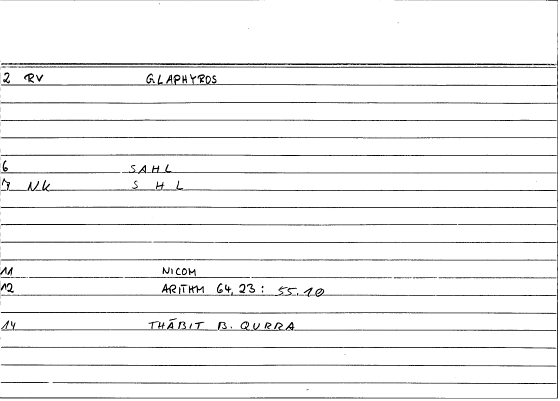 2 RV GLAPHYROS
6 SAHL
7 NK S H L
11 NICOM
12 ARITHM 64,23: 55.10
14 THĀBIT B. QURRA